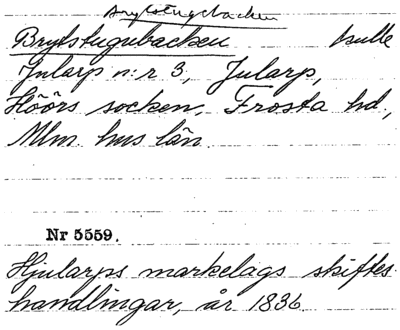 Brytstugebacken
Brytstugubacken kulle
Jularp n:r 3, Jularp,
Höörs socken, Frosta hd,
Mlm. hus län.
Nr 5559.
Hjularps markelags skiftes-
handlingar, år 1836.